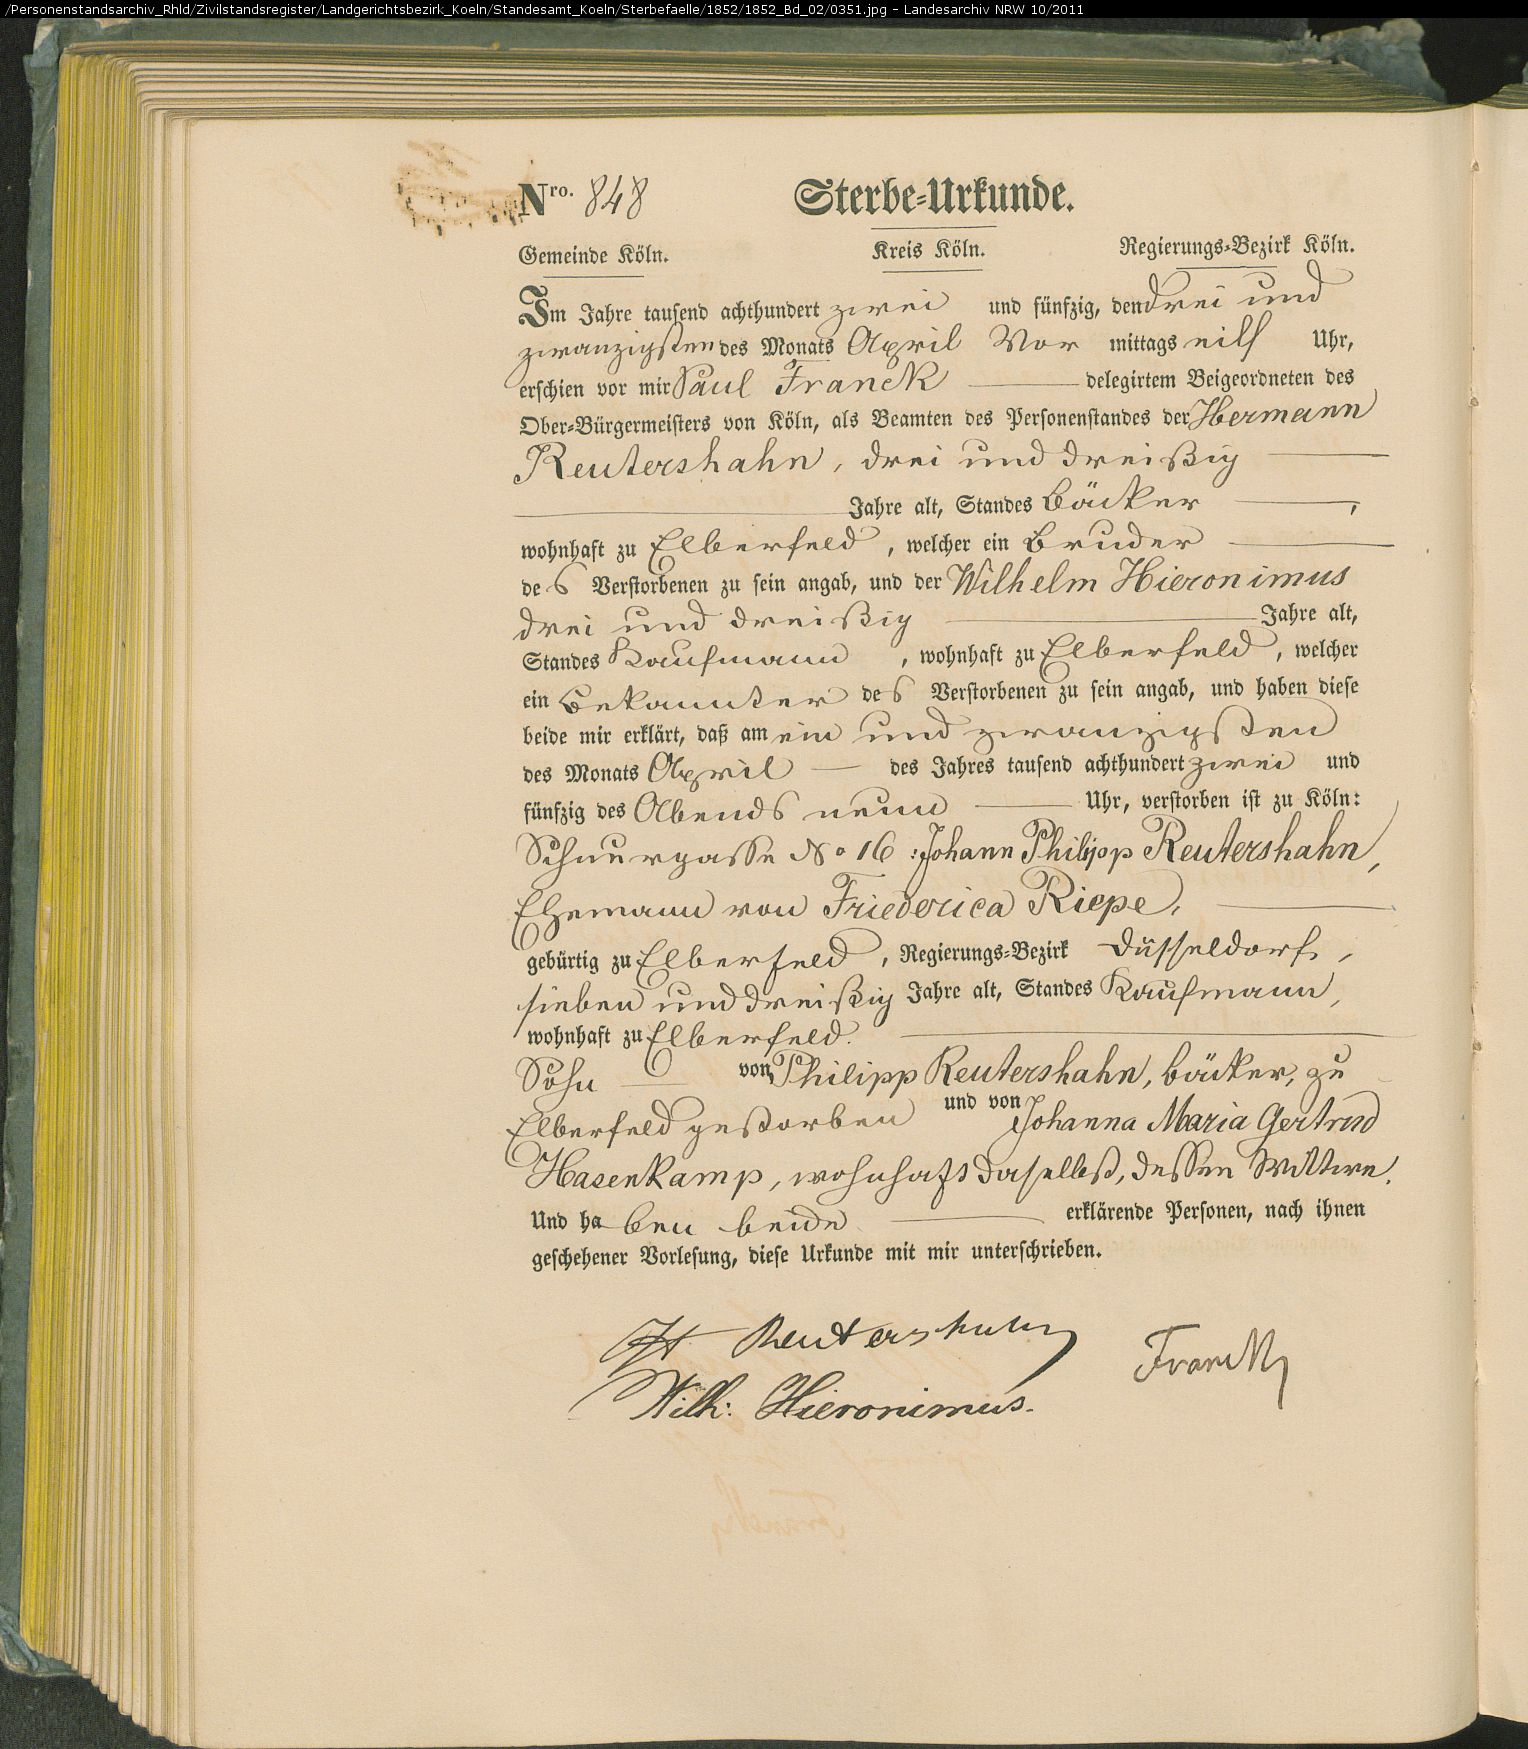 /Personenstandsarchiv_Rhld/Zivilstandsregister/Landgerichtsbezirk_Koeln/Standesamt_Koeln/Sterbefaelle/1852/1852_Bd_02/0351.jpg - Landesarchiv NRW 10/2011
Nro. 848 Sterbe-Urkunde.
Gemeinde Köln. Kreis Köln. Regierungs-Bezirk Köln.
Im Jahre tausend achthundert zwei und fünfzig, den drei und
zwanzigsten des Monats April Vor mittags eilf Uhr,
erschien vor mir Paul Franck delegirtem Beigeordneten des
Ober-Bürgermeisters von Köln, als Beamten des Personenstandes der Hermann
Reutershahn, drei und dreißig
Jahre alt, Standes Bäcker ,
wohnhaft zu Elberfeld , welcher ein Bruder
des Verstorbenen zu sein angab, und der Wilhelm Hieronimus
drei und dreißig Jahre alt,
Standes Kaufmann , wohnhaft zu Elberfeld , welcher
ein Bekannter des Verstorbenen zu sein angab, und haben diese
beide mir erklärt, daß am ein und zwanzigsten
des Monats April — des Jahres tausend achthundert zwei und
fünfzig des Abends neun Uhr, verstorben ist zu Köln:
Schnurgasse No 16 : Johann Philipp Reutershahn,
Ehemann von Friederica Riepe,
gebürtig zu Elberfeld , Regierungs-Bezirk Düsseldorf ,
sieben und dreißig Jahre alt, Standes Kaufmann,
wohnhaft zu Elberfeld.
Sohn von Philipp Reutershahn, Bäcker, zu
Elberfeld gestorben und von Johanna Maria Gertrud
Hasenkamp, wohnhaft daselbst, dessen Wittwe.
Und haben beide erklärende Personen, nach ihnen
geschehener Vorlesung, diese Urkunde mit mir unterschrieben.
Reutershahn Franck
Wilh: Hieronimus.